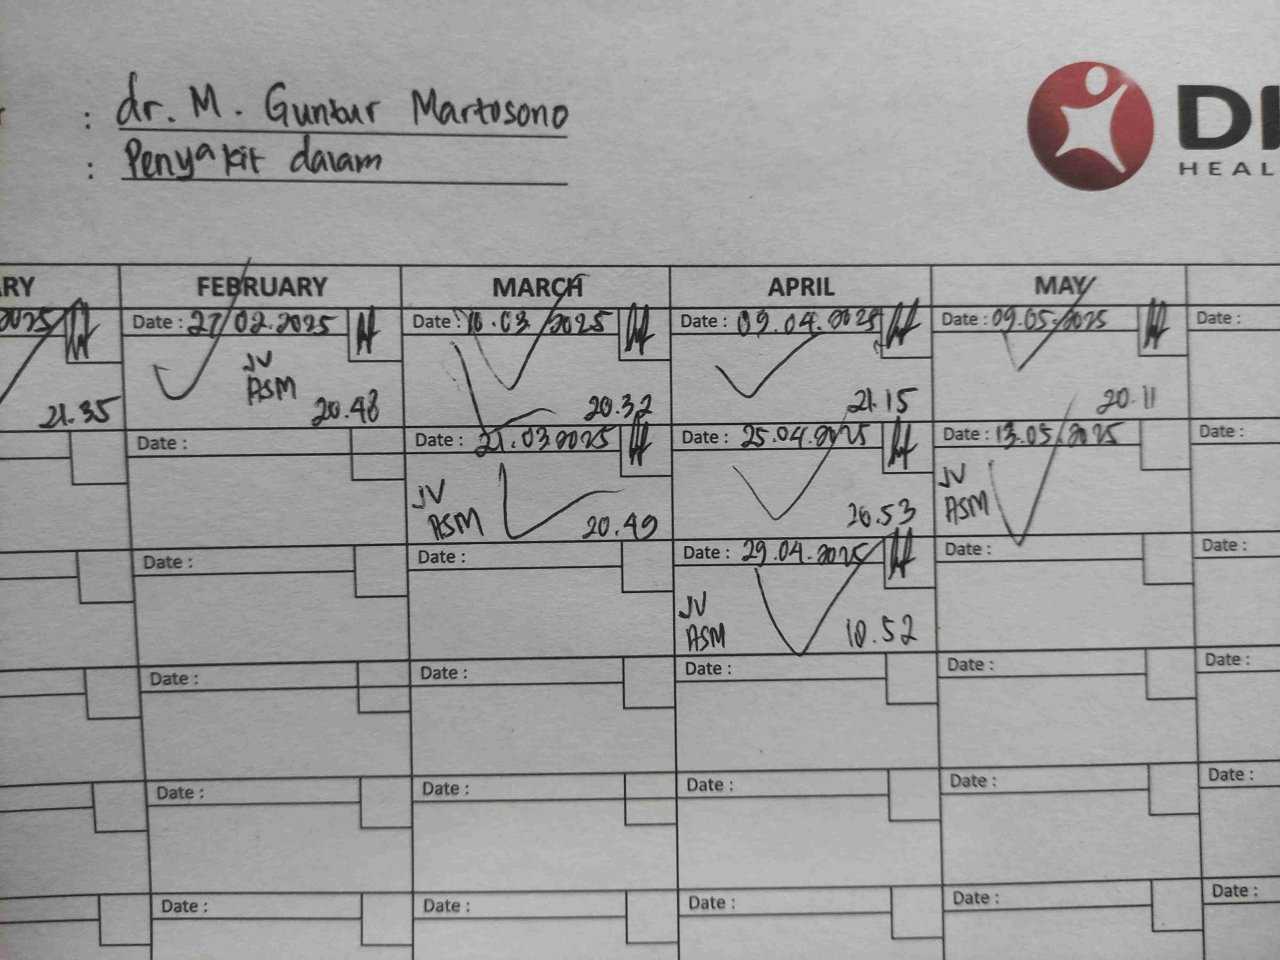 : dr. M. Guntur Martosono
: Penyakit dalam
HEAL
RY FEBRUARY MARCH APRIL MAY
2025 Date : 27/02.2025 Date : 10.03/2025 Date : 09.04.2025 Date : 09.05.2025 Date :
JV
ASM
21.35 20.48 20.32 21.15 20.11
Date : Date : 21.03.2025 Date : 25.04.2025 Date : 13.05.2025 Date :
JV JV
ASM 20.49 20.53 ASM
Date : Date : Date : 29.04.2025 Date : Date :
JV
ASM 10.52
Date : Date : Date : Date : Date :
Date : Date : Date : Date : Date :
Date : Date : Date : Date : Date :